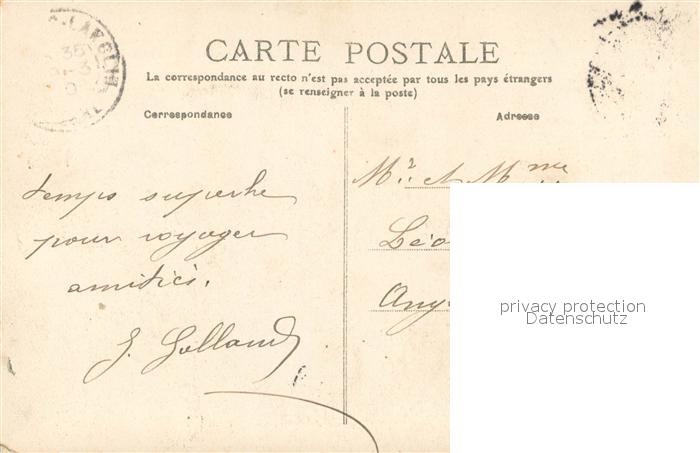 CARTE POSTALE
La correspondance au recto n'est pas acceptée par tous les pays étrangers
(se renseigner à la poste)
Correspondance
Adresse
temps superbe
pour voyager
amitiés.
Mr. et Mme
Léo
Ang
privacy protection
Datenschutz